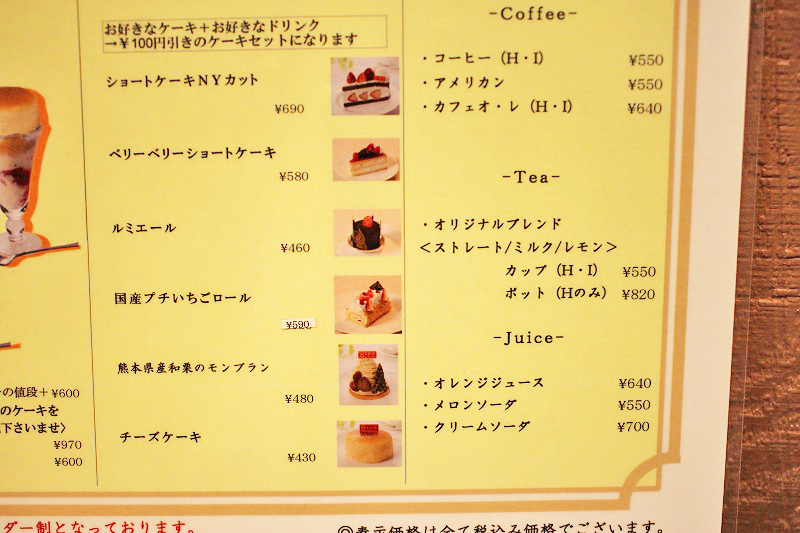 お好きなケーキ＋お好きなドリンク
→￥100円引きのケーキセットになります
ショートケーキＮＹカット
¥690
ベリーベリーショートケーキ
¥580
ルミエール
¥460
国産プチいちごロール
¥590
熊本県産和栗のモンブラン
¥480
チーズケーキ
¥430
-Coffee-
・コーヒー（H・I） ¥550
・アメリカン ¥550
・カフェオ・レ（H・I） ¥640
-Tea-
・オリジナルブレンド
＜ストレート/ミルク/レモン＞
カップ（H・I） ¥550
ポット（Hのみ） ¥820
-Juice-
・オレンジジュース ¥640
・メロンソーダ ¥550
・クリームソーダ ¥700
の値段＋¥600
のケーキを
下さいませ＞
¥970
¥600
ダー制となっております。
◎表示価格は全て税込み価格でございます。